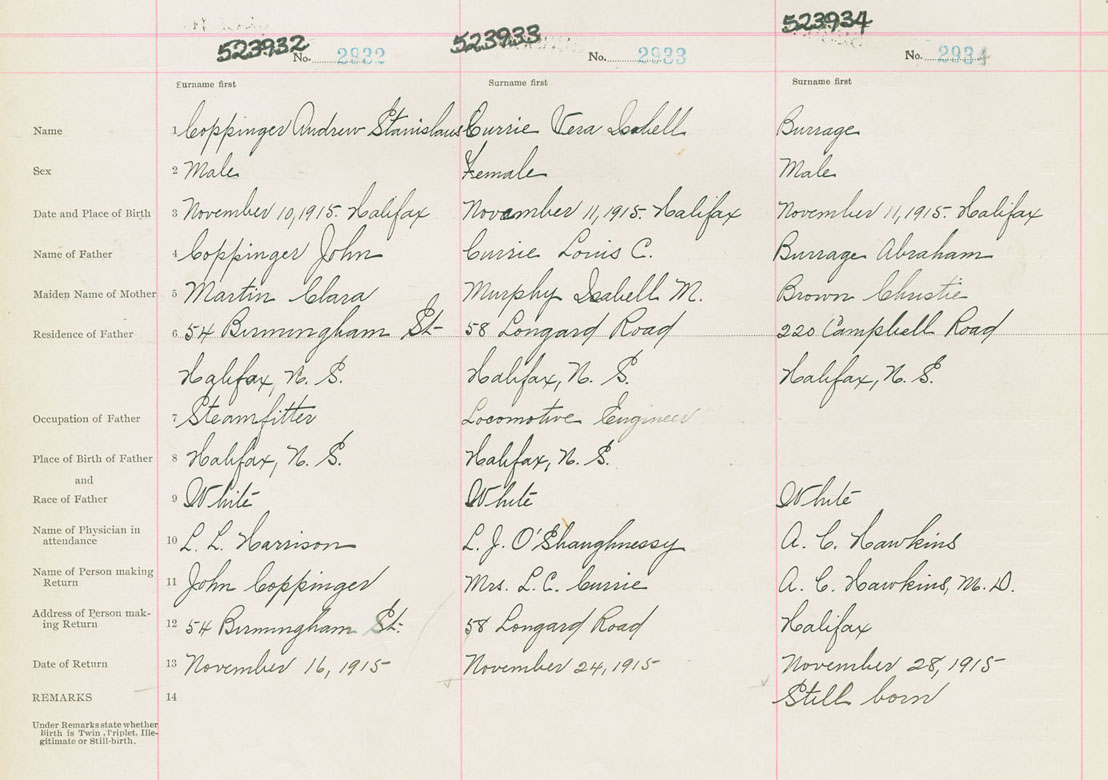 523932 No. 2932 523933 No. 2933 523934 No. 2934
Surname first Surname first Surname first
Name 1 Coppinger Andrew Stanislaus Currie Vera Isabell Burrage
Sex 2 Male Female Male
Date and Place of Birth 3 November 10, 1915. Halifax November 11, 1915. Halifax November 11, 1915. Halifax
Name of Father 4 Coppinger John Currie Louis C. Burrage Abraham
Maiden Name of Mother 5 Martin Clara Murphy Isabell M. Brown Christie
Residence of Father 6 54 Birmingham St- 58 Longard Road 220 Campbell Road
Halifax, N. S. Halifax, N. S. Halifax, N. S.
Occupation of Father 7 Steamfitter Locomotive Engineer
Place of Birth of Father 8 Halifax, N. S. Halifax, N. S.
and
Race of Father 9 White White White
Name of Physician in
attendance 10 L. L. Harrison L. J. O'Shaughnessy A. C. Hawkins
Name of Person making
Return 11 John Coppinger Mrs. L. C. Currie A. C. Hawkins, M. D.
Address of Person mak-
ing Return 12 54 Birmingham St. 58 Longard Road Halifax
Date of Return 13 November 16, 1915 November 24, 1915 November 28, 1915
REMARKS 14 Still born
Under Remarks state whether
Birth is Twin, Triplet, Ille-
gitimate or Still-birth.